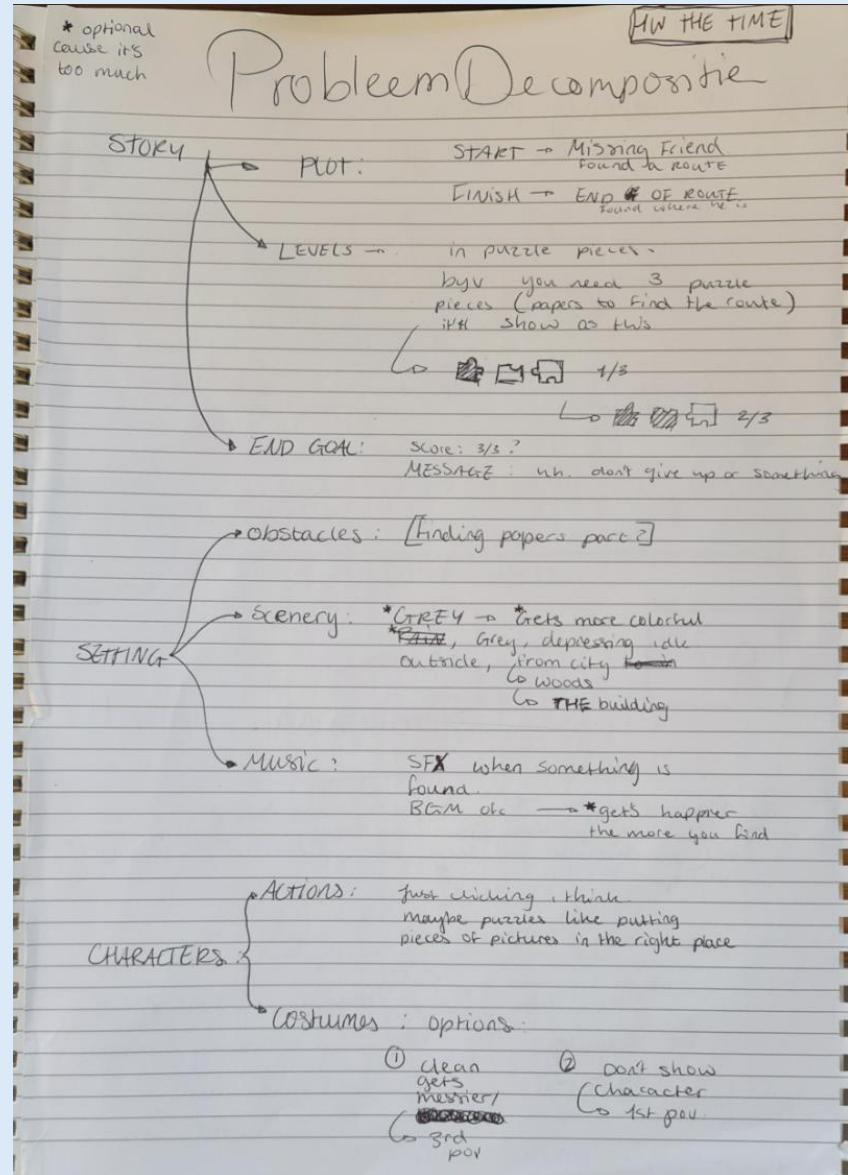 * optional
cause it's
too much
HW THE TIME
Probleem Decompositie
STORY
PLOT:
START → Missing Friend
found a ROUTE
FINISH → END OF ROUTE
found where he is
LEVELS →
in puzzle pieces.
you need 3 puzzle
pieces (papers to find the route)
show as this
1/3
2/3
END GOAL:
Score: 3/3?
MESSAGE: uh. don't give up or something
SETTING
Obstacles: [Finding papers part?]
Scenery:
*GREY → *Gets more colorful
*RAIN, Grey, depressing idk
outside, from city
↳ woods
↳ THE building
Music:
SFX when something is
found.
BGM ofc → *gets happier
the more you find
CHARACTERS:
ACTIONS:
Just clicking i think.
maybe puzzles like putting
pieces of pictures in the right place
Costumes: options:
① clean
gets
messier/
↳ 3rd
pov
② Don't show
character
↳ 1st pov.